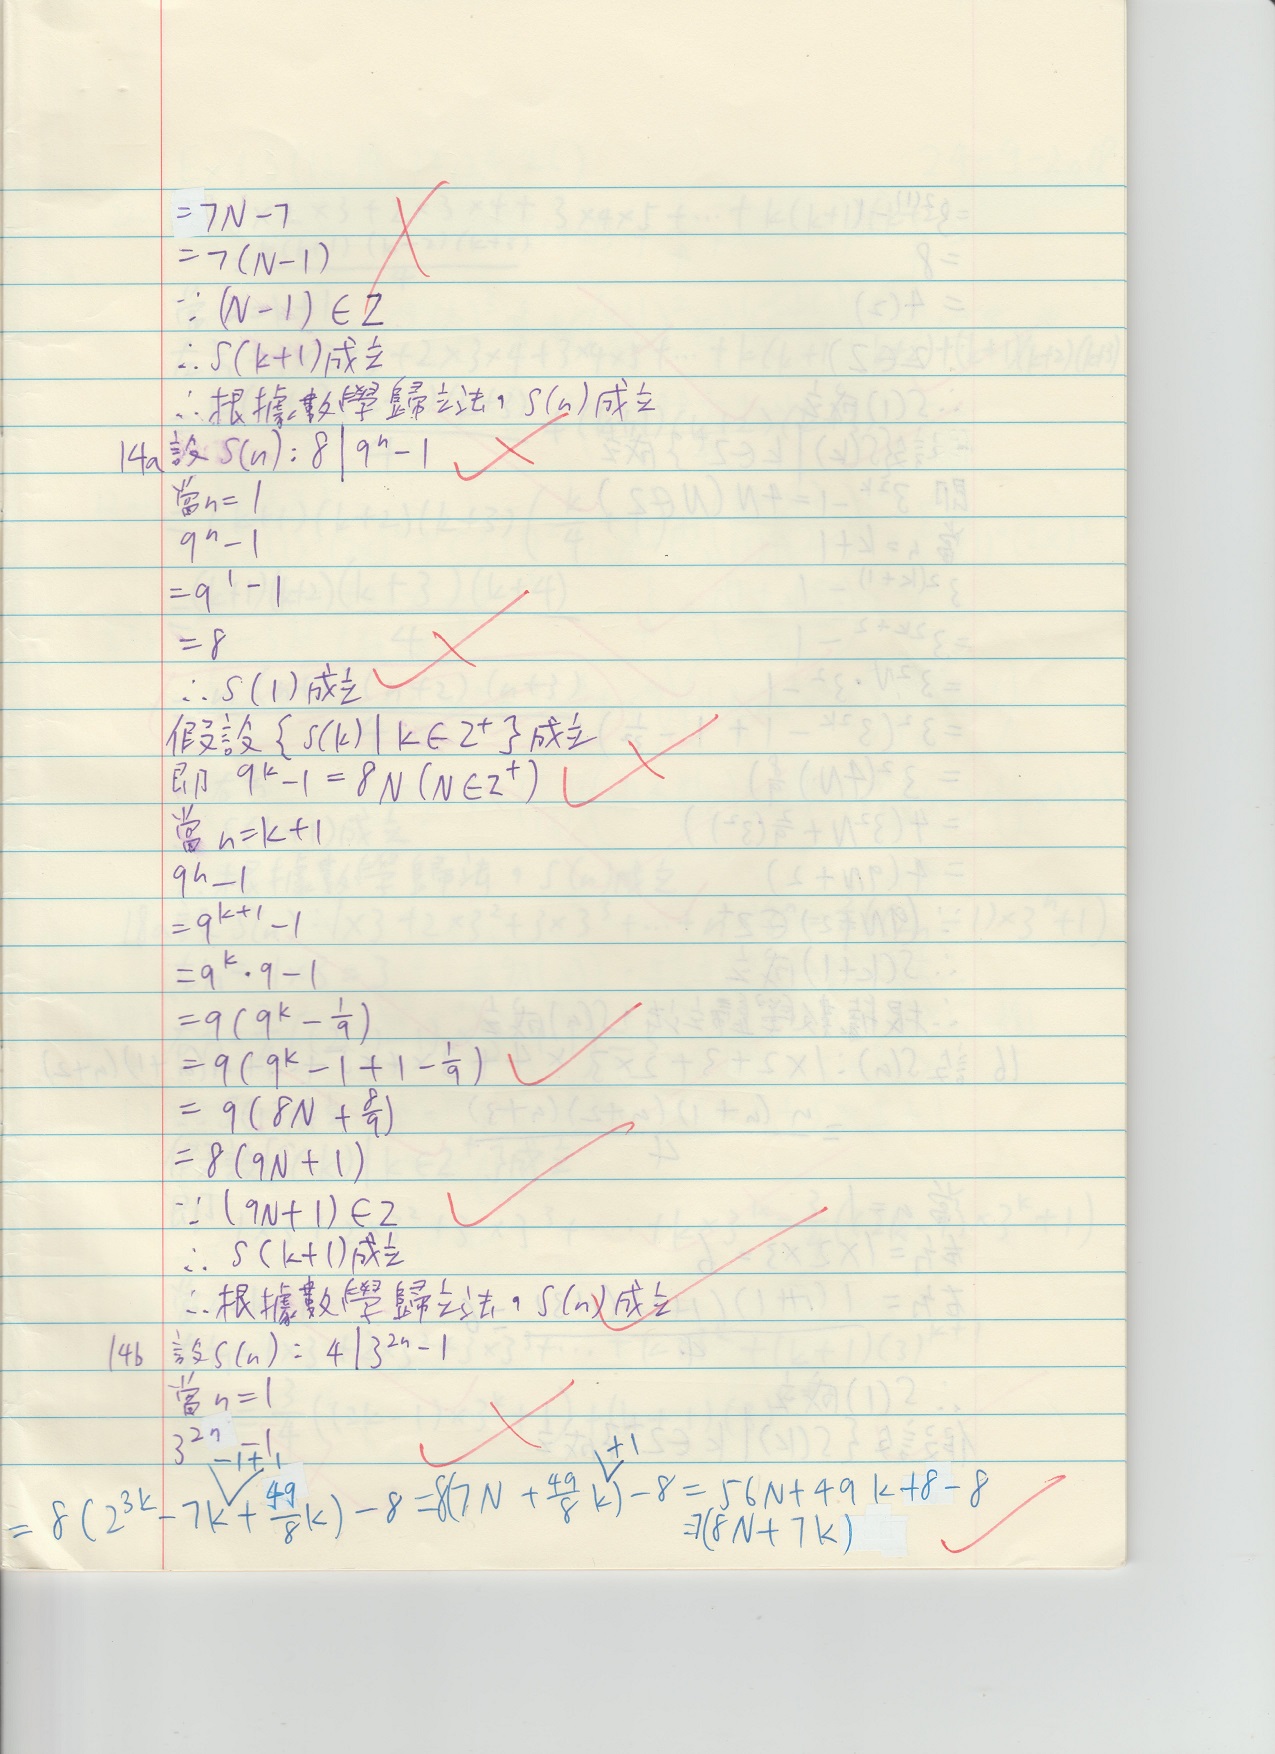 =7N-7
=7(N-1)
∵(N-1)∈Z
∴S(k+1)成立
∴根據數學歸立法,S(n)成立
14a 設S(n):8|9ⁿ-1
當n=1
9ⁿ-1
=9¹-1
=8
∴S(1)成立
假設{S(k)|k∈Z⁺}成立
即 9ᵏ-1=8N(N∈Z⁺)
當n=k+1
9ⁿ-1
=9ᵏ⁺¹-1
=9ᵏ·9-1
=9(9ᵏ-1/9)
=9(9ᵏ-1+1-1/9)
=9(8N+8/9)
=8(9N+1)
∵(9N+1)∈Z
∴S(k+1)成立
∴根據數學歸立法,S(n)成立
14b 設S(n):4|3²ⁿ-1
當n=1
3²ⁿ-1
-1+1
+1
=8(2³ᵏ-7k+49/8k)-8=8(7N+49/8k)-8=56N+49k+8-8
=7(8N+7k)